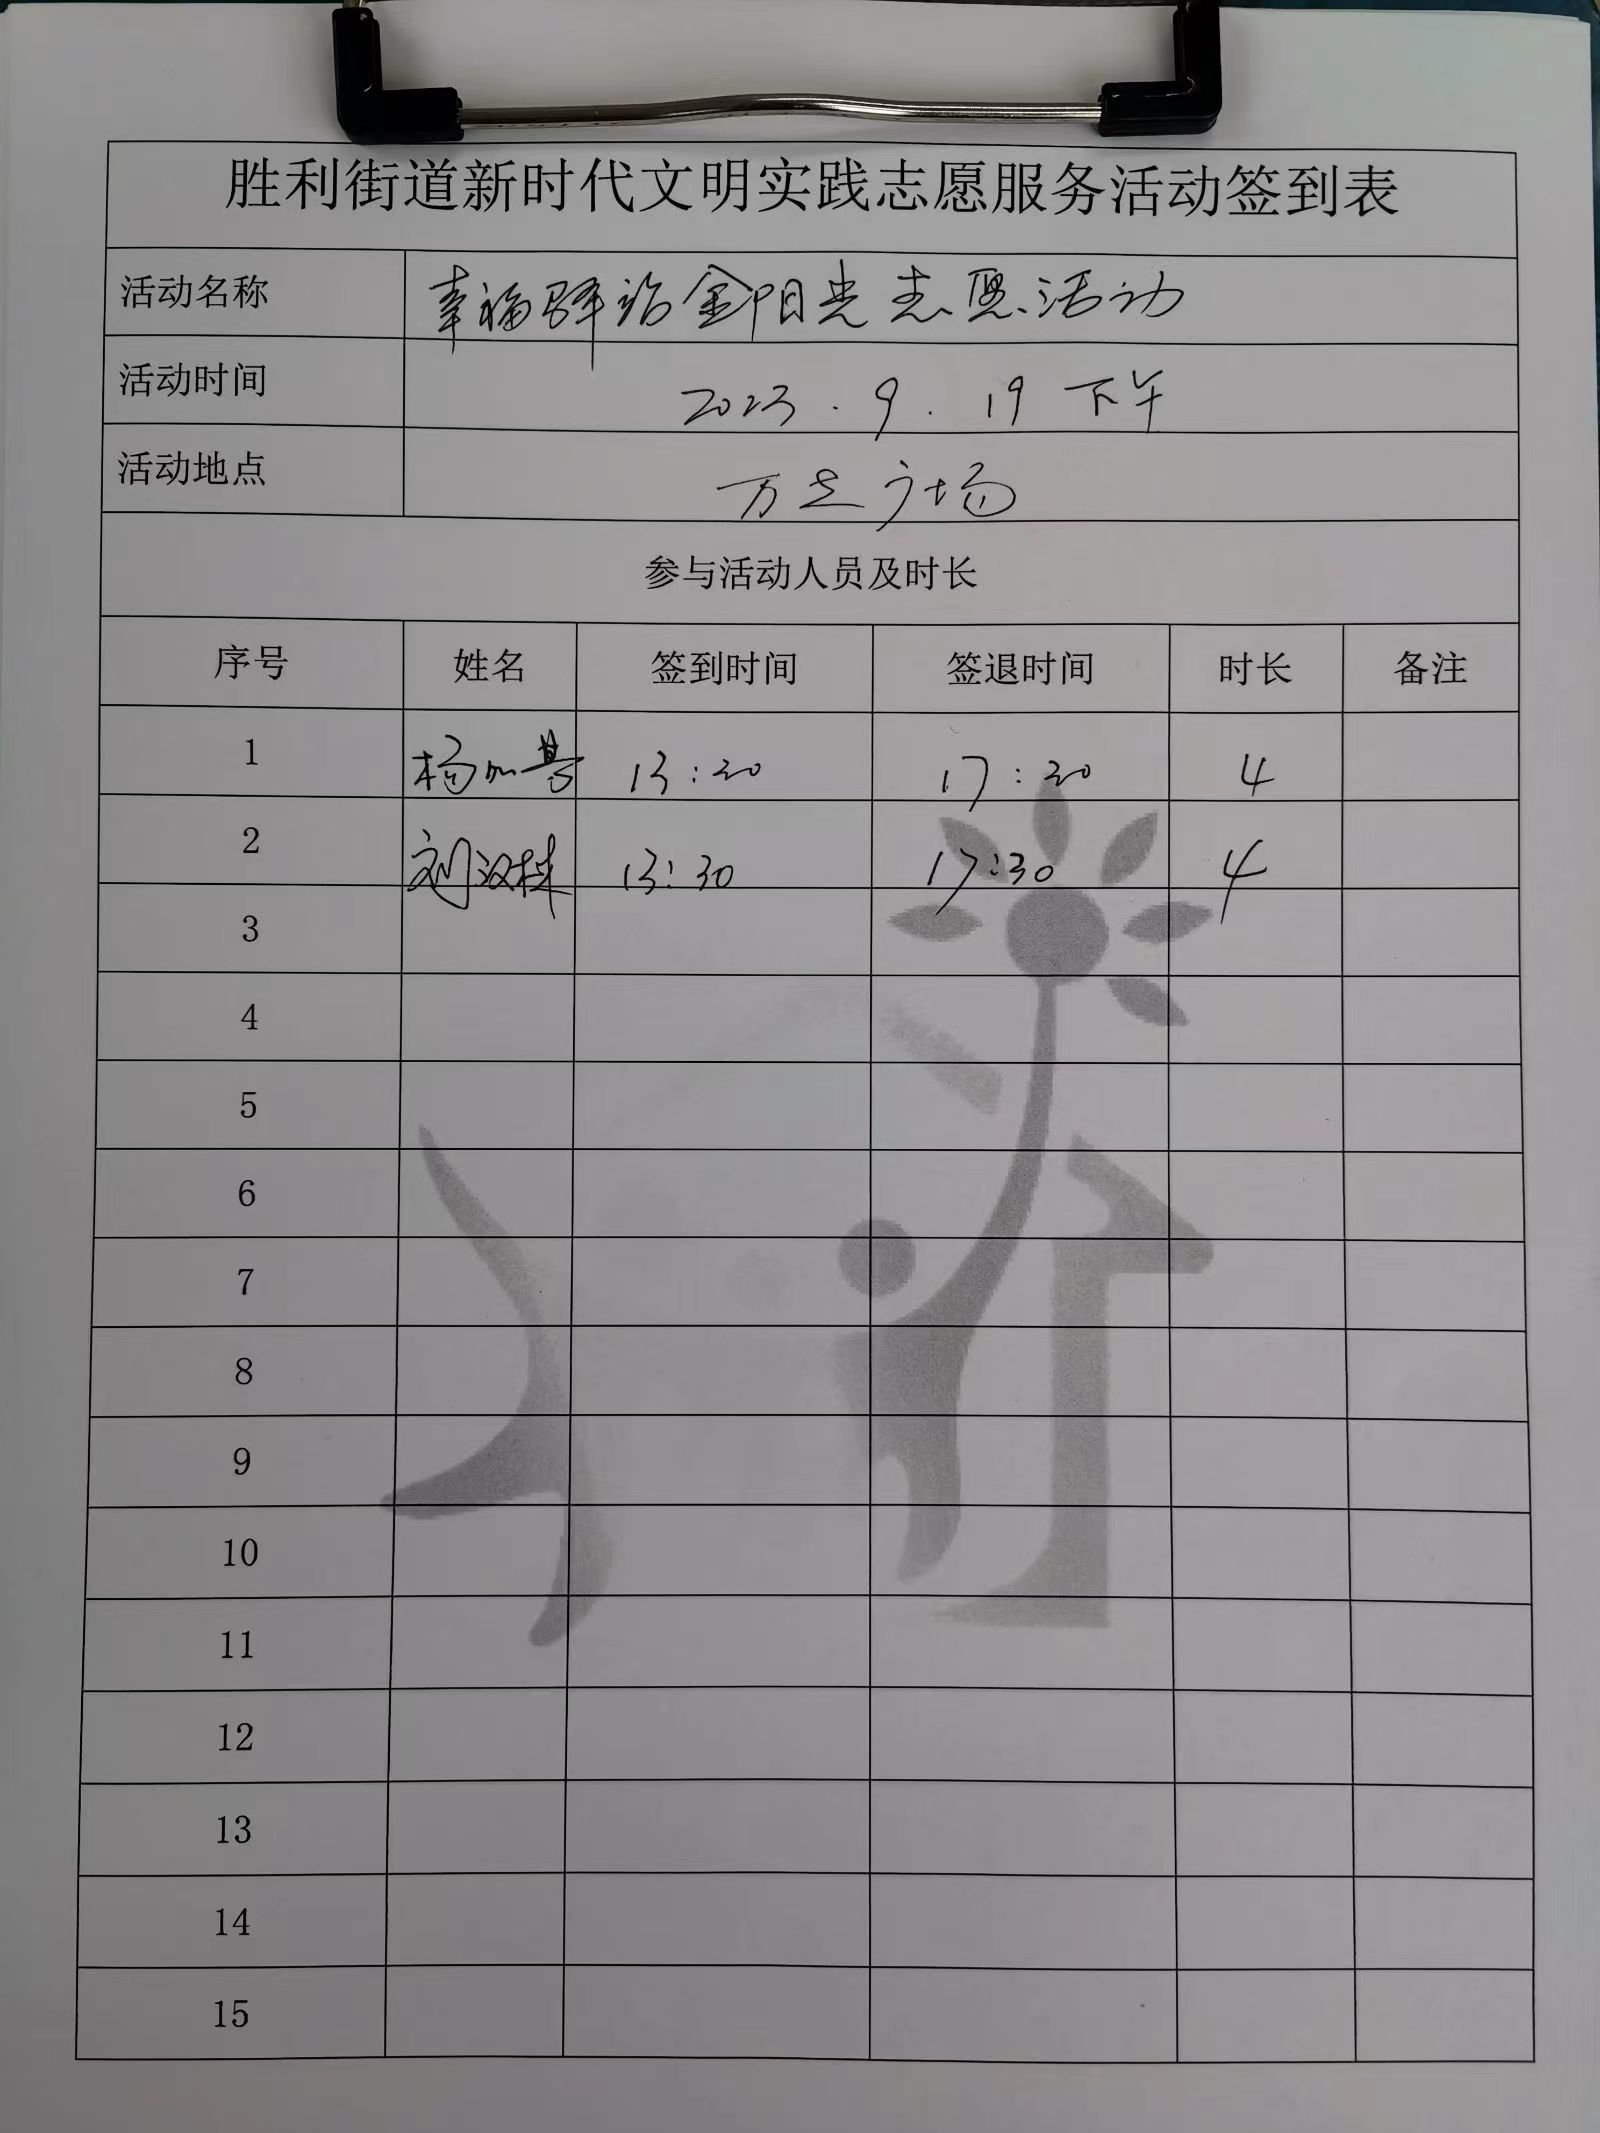 胜利街道新时代文明实践志愿服务活动签到表
活动名称 幸福驿站金阳光志愿活动
活动时间 2023.9.19 下午
活动地点 万达广场
参与活动人员及时长
序号 姓名 签到时间 签退时间 时长 备注
1 杨 13:20 17:20 4
2 刘汉林 13:30 17:30 4
3
4
5
6
7
8
9
10
11
12
13
14
15